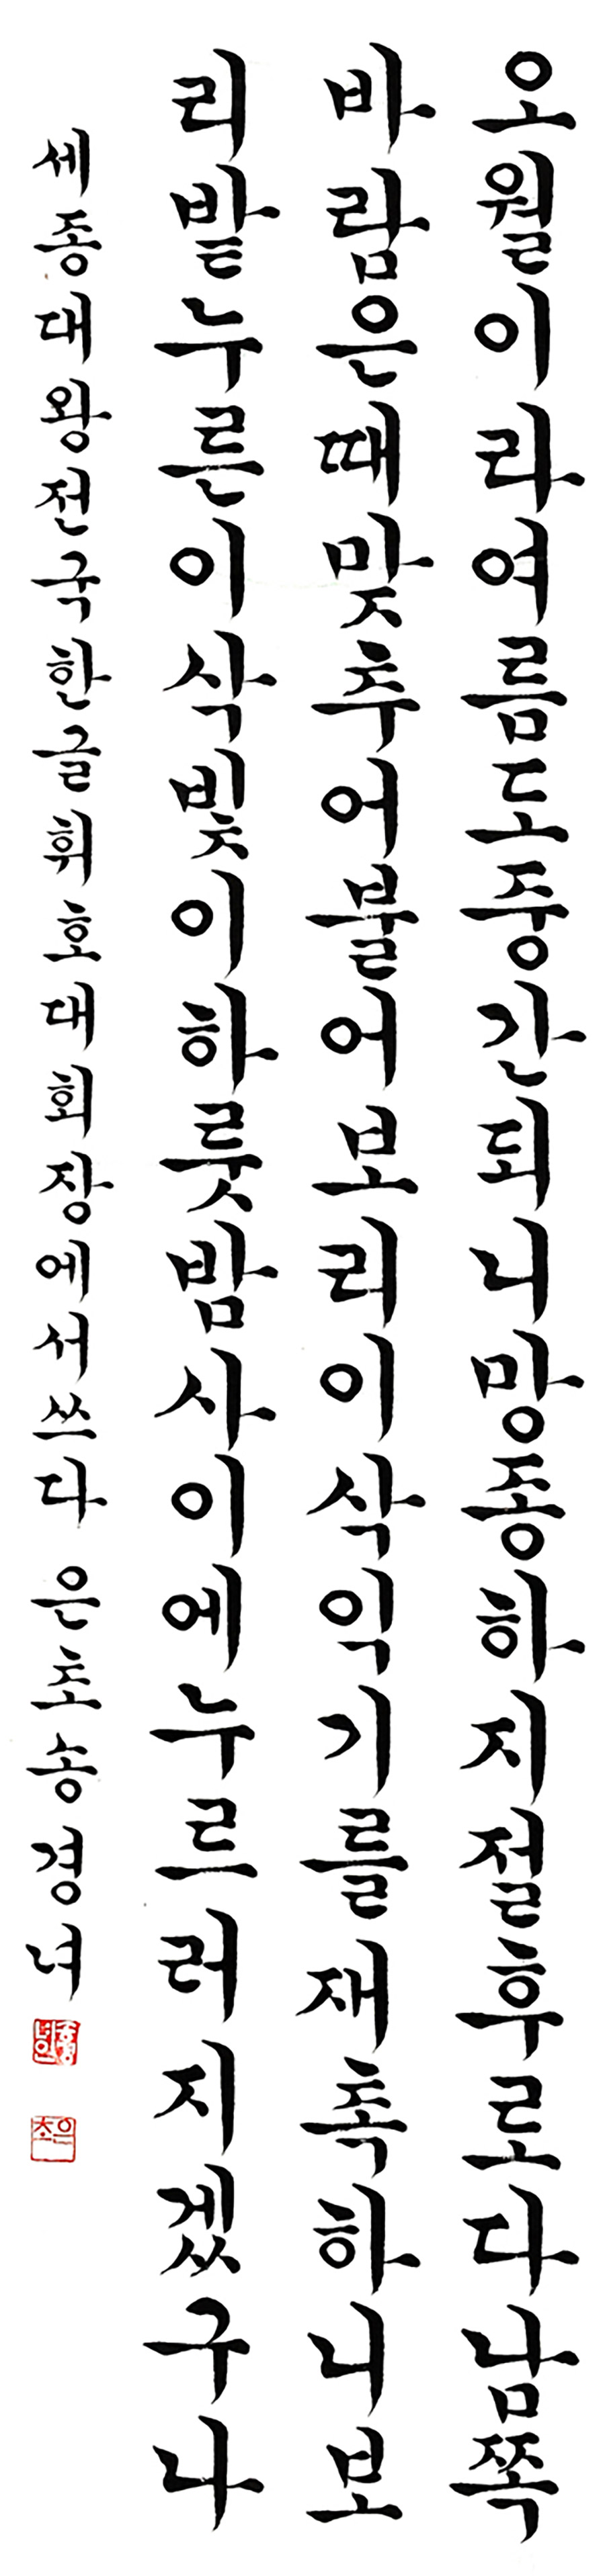 오월이라여름도중간되니망종하지절후로다남쪽
바람은때맞추어불어보리이삭익기를재촉하니보
리밭누른이삭빛이하룻밤사이에누르러지겠구나
세종대왕전국한글휘호대회장에서쓰다 은초송경녀
은초